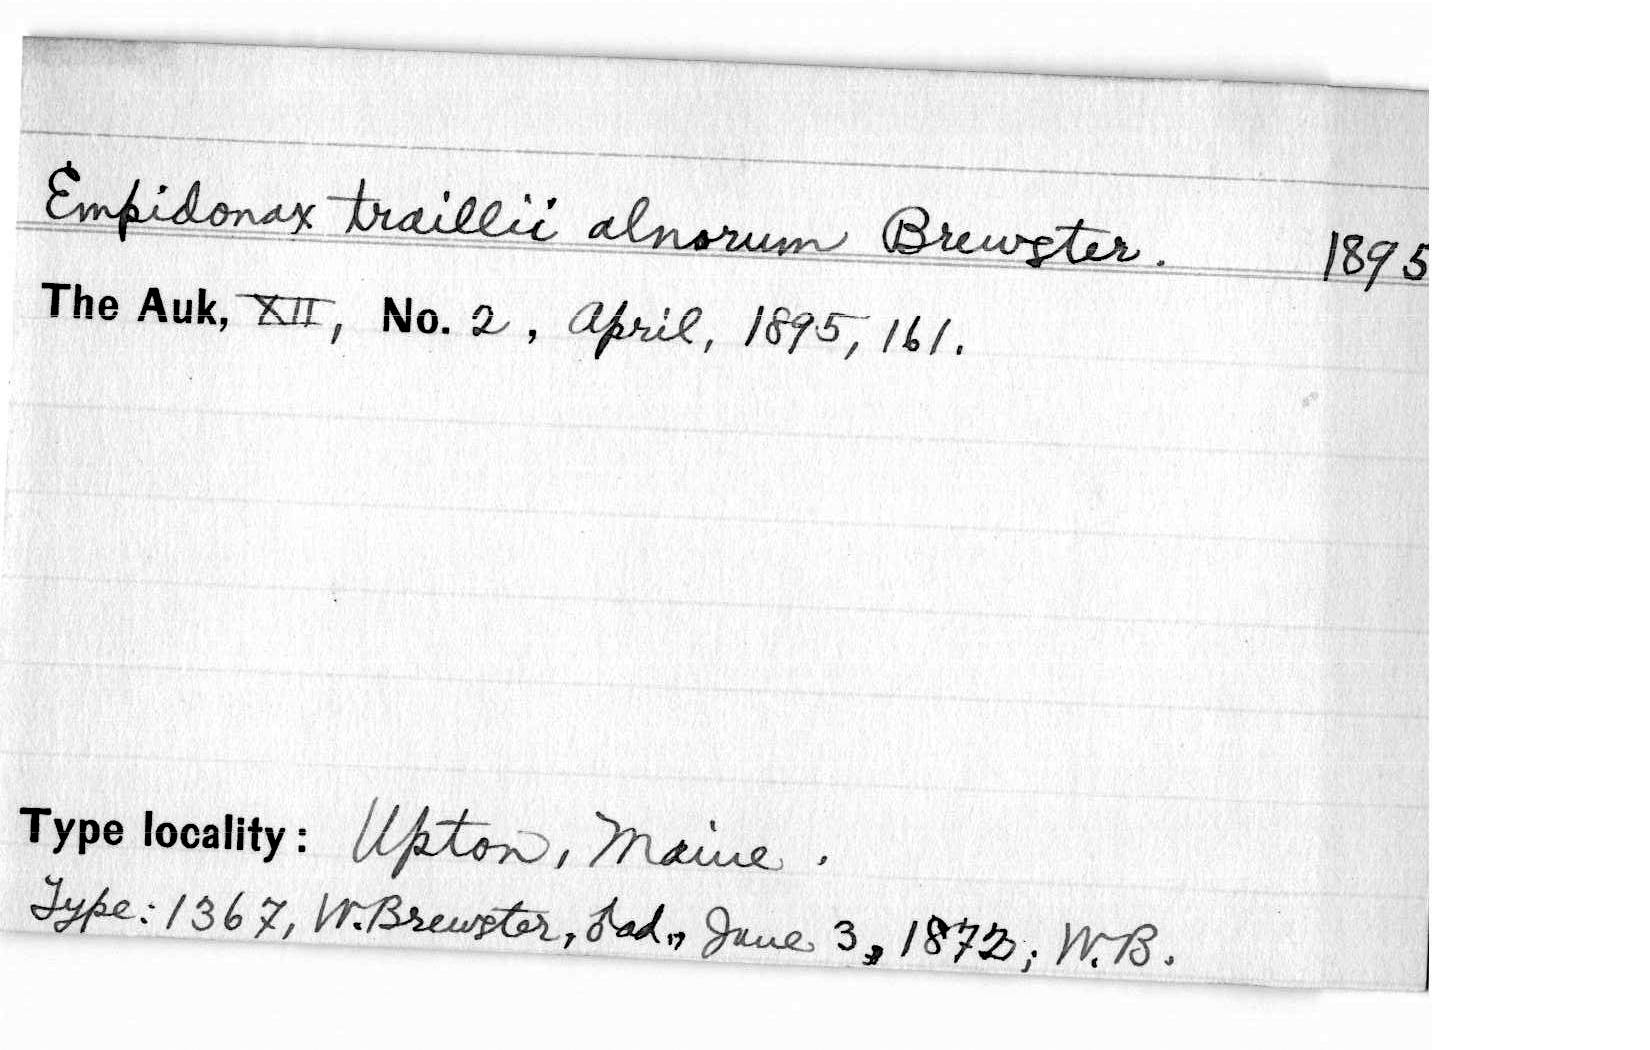 Empidonax traillii alnorum Brewster. 1895
The Auk, XII, No. 2, April, 1895, 161.
Type locality: Upton, Maine.
Type: 1367, W. Brewster, ad., June 3, 1872; W.B.